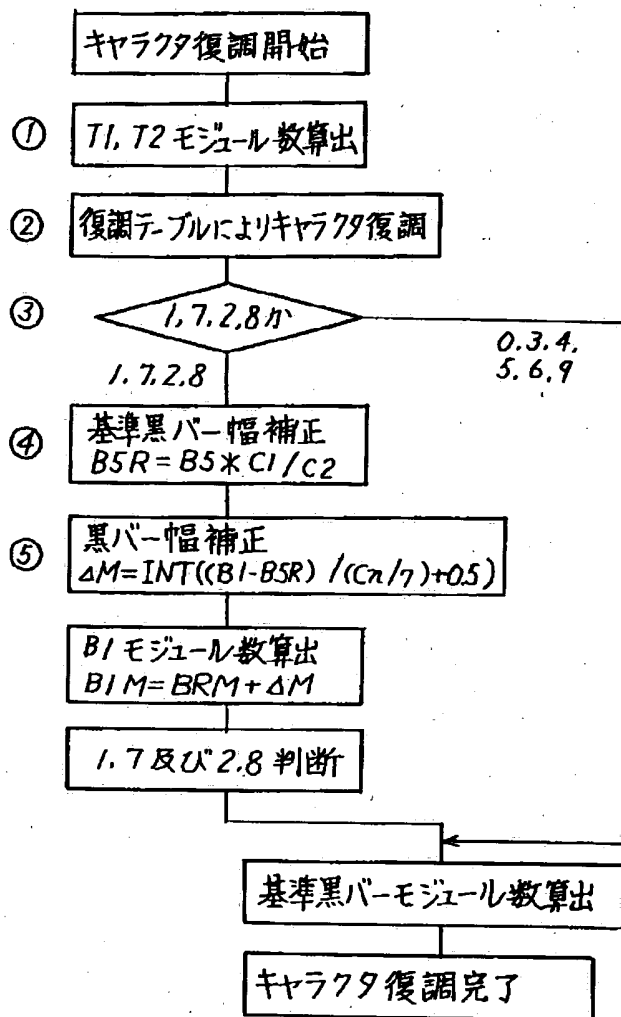 キャラクタ復調開始
① T1, T2 モジュール数算出
② 復調テーブルによりキャラクタ復調
③ 1,7,2,8か
0.3.4.
5.6.9
1.7.2.8
④ 基準黒バー幅補正
B5R=B5*C1/C2
⑤ 黒バー幅補正
ΔM=INT((B1-B5R)/(Cn/7)+0.5)
B1モジュール数算出
B1M=BRM+ΔM
1.7及び2.8判断
基準黒バーモジュール数算出
キャラクタ復調完了